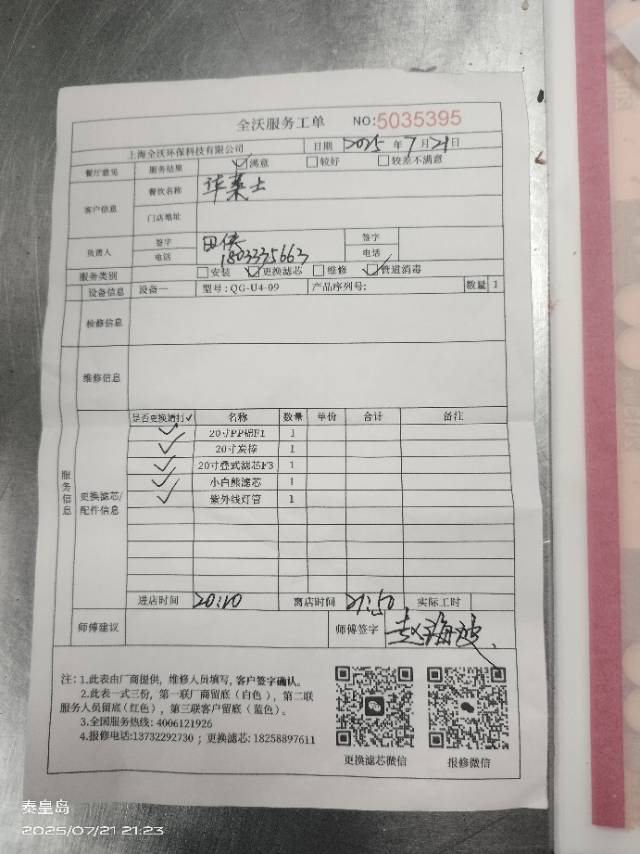 全沃服务工单 NO:5035395
上海全沃环保科技有限公司 日期 2025 年 7 月 21 日
餐厅意见 服务结果 ☑满意 □较好 □较差不满意
客户信息 餐饮名称 华莱士
门店地址
负责人 签字 签字
电话 电话
服务类别 □安装 ☑更换滤芯 □维修 ☑管道消毒
设备信息 设备一 型号:QG-U4-09 产品序列号: 数量 1
检修信息
维修信息
服务信息
更换滤芯/配件信息
是否更换请打✓ 名称 数量 单价 合计 备注
✓ 20寸PP棉F1 1
✓ 20寸炭棒 1
✓ 20寸叠式滤芯F3 1
✓ 小白熊滤芯 1
✓ 紫外线灯管 1
进店时间 20:10 离店时间 21:50 实际工时
师傅建议 师傅签字 赵海波
注:1.此表由厂商提供,维修人员填写,客户签字确认。
2.此表一式三份,第一联厂商留底(白色),第二联
服务人员留底(红色),第三联客户留底(蓝色)。
3.全国服务热线:4006121926
4.报修电话:13732292730;更换滤芯:18258897611
更换滤芯微信 报修微信
秦皇岛
2025/07/21 21:23